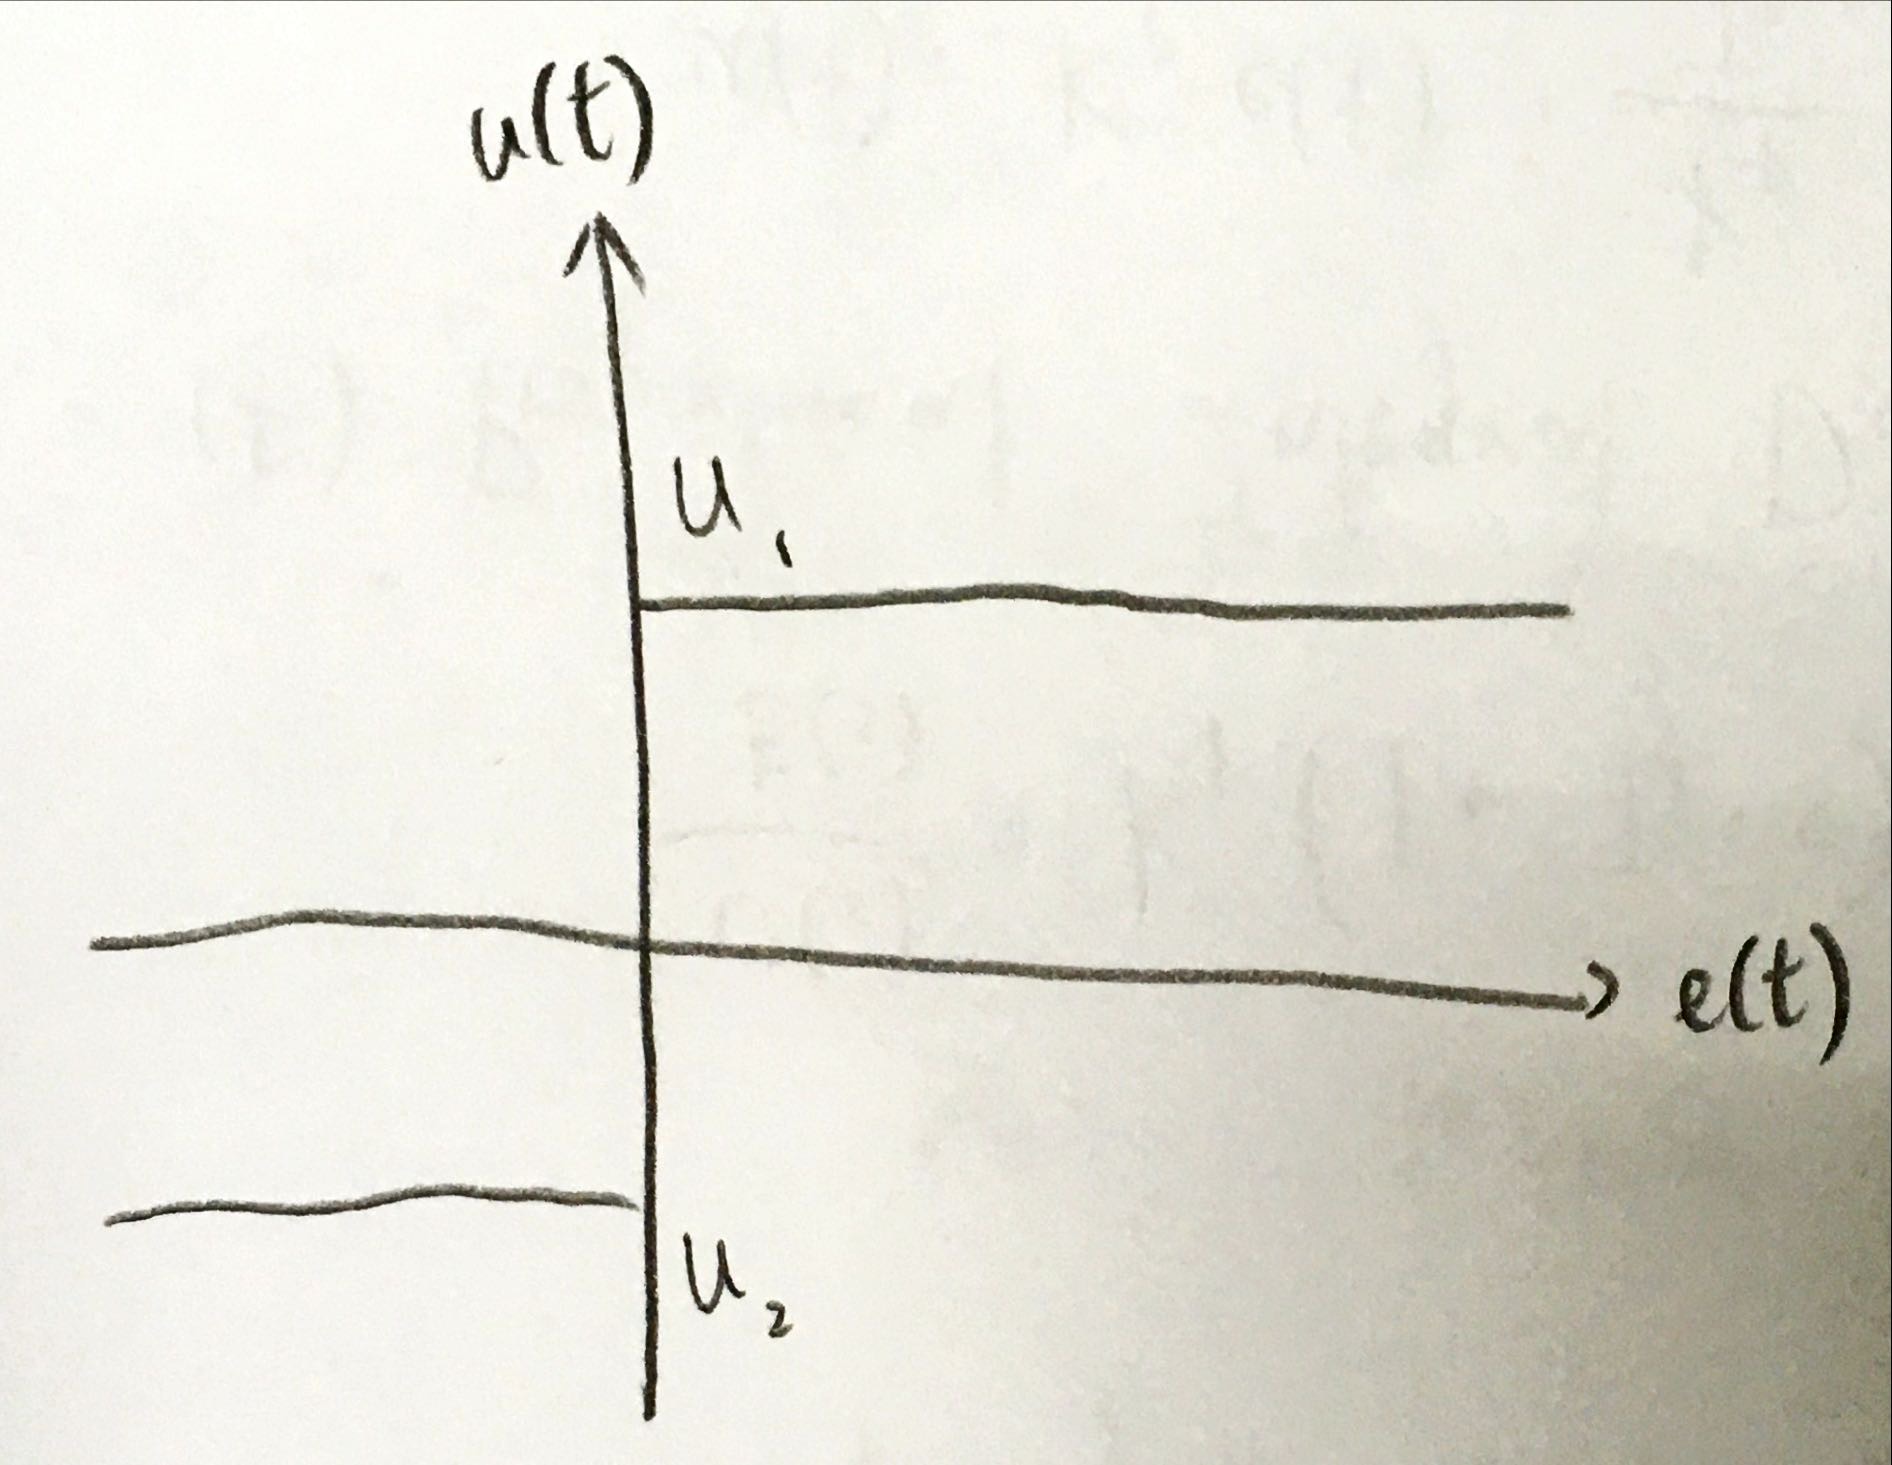 u(t)
U₁
e(t)
U₂